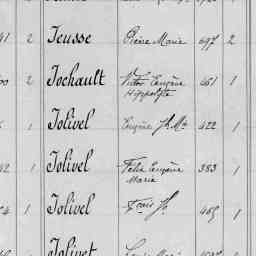 41 2 Jeusse Pierre Marie 697 2
2 Jochault Victor Eugène Hippolyte 461 1
1 Jolivel Eugène Jh Mie 422 1
42 1 Jolivel Félix Eugène Marie 383 1
1 Jolivel Frois Jh 465 1
Jolivet Louis Marie